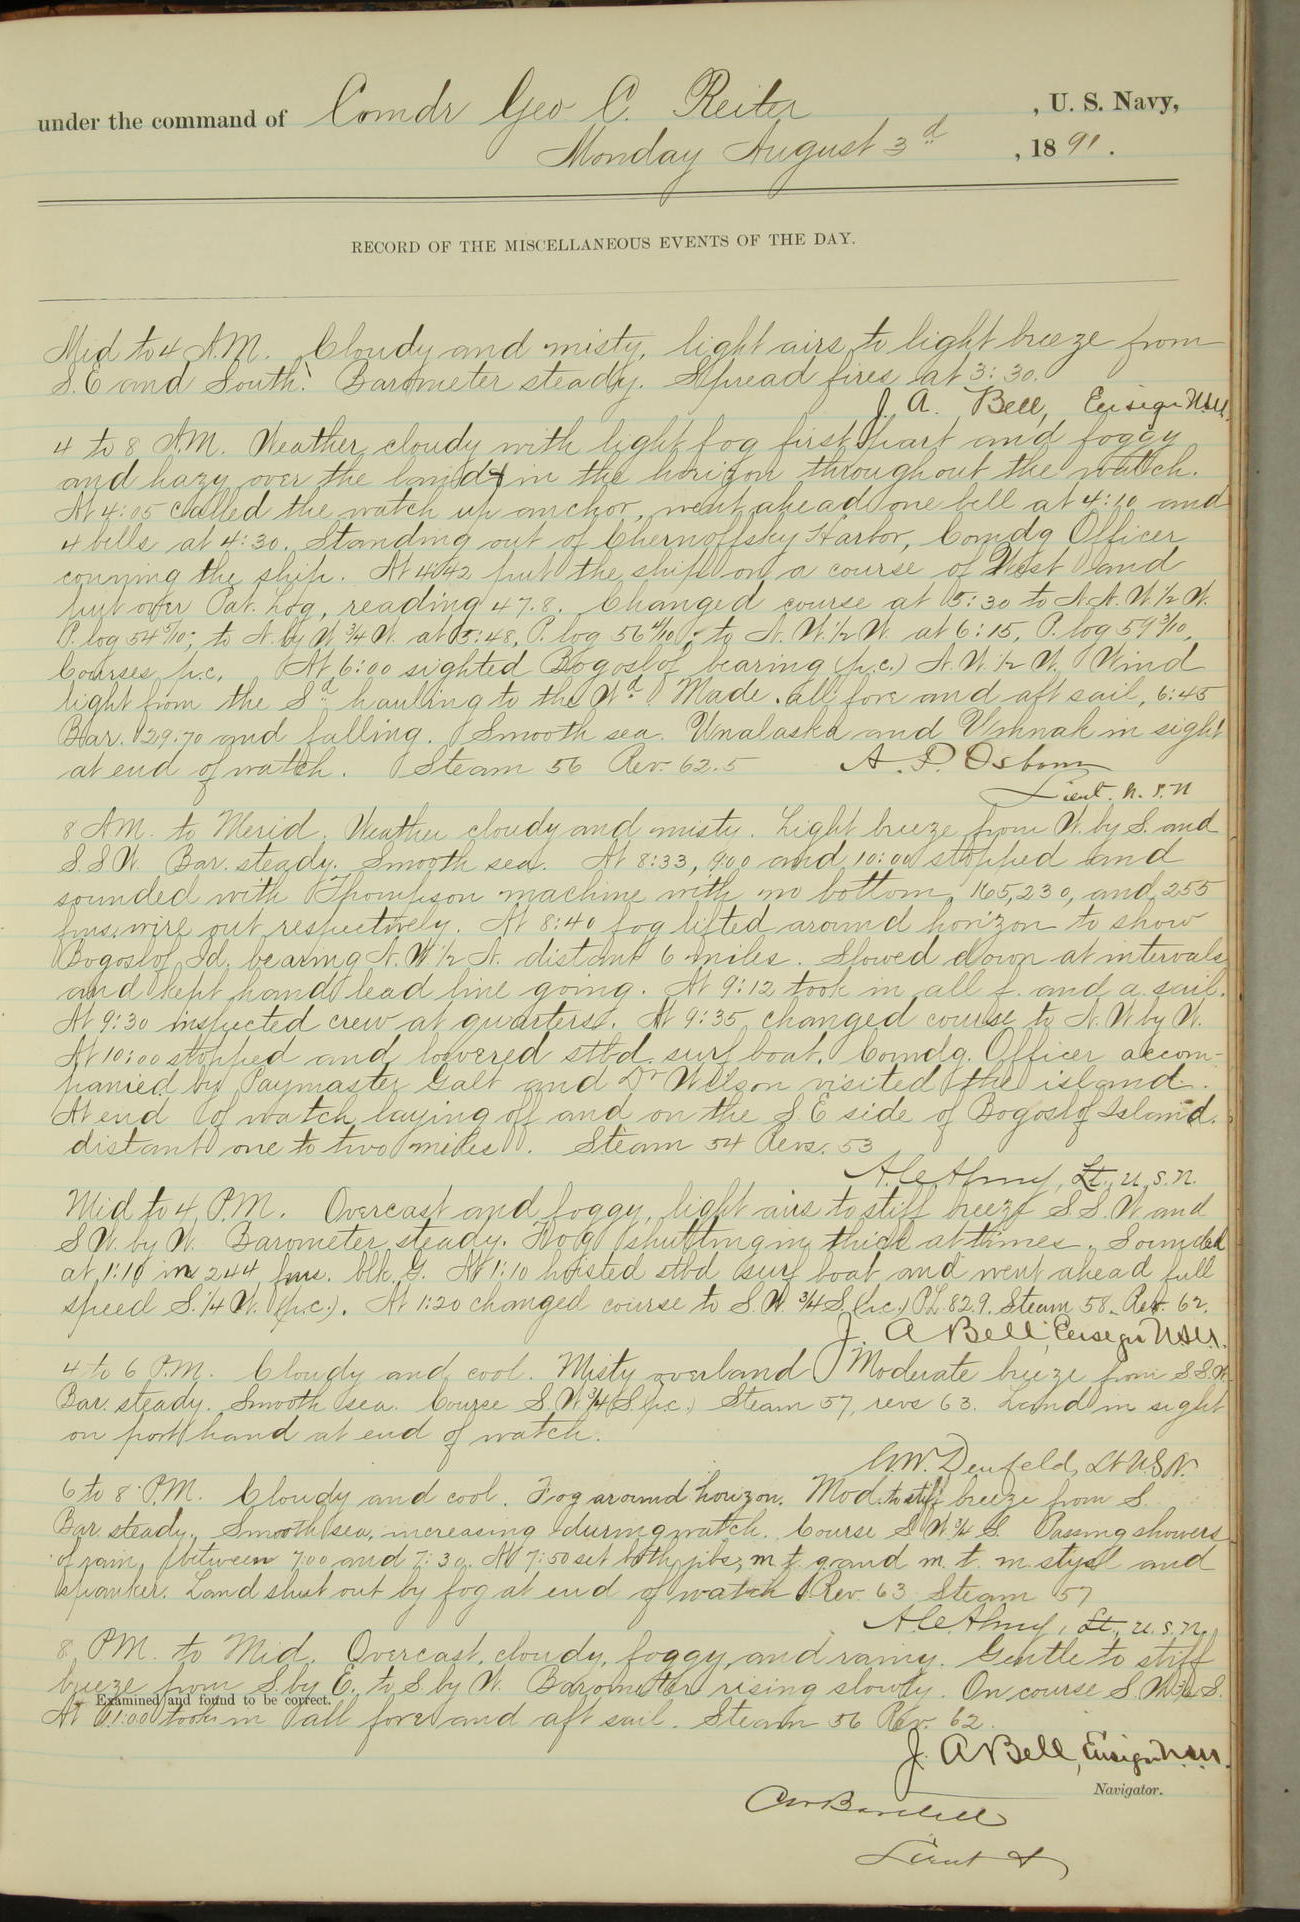 under the command of Comdr Geo C. Reiter , U. S. Navy,
Monday August 3d , 1891.
RECORD OF THE MISCELLANEOUS EVENTS OF THE DAY.
Mid to 4 A.M. Cloudy and misty, light airs to light breeze from
S.E and South. Barometer steady. Spread fires at 3:30.
J. A. Bell, Ensign U.S.N.
4 to 8 A.M. Weather cloudy with light fog first part and foggy
and hazy over the land & in the horizon throughout the watch.
At 4:05 called the watch up anchor, went ahead one bell at 4:10 and
4 bells at 4:30. Standing out of Chernoffsky Harbor, Comdg Officer
conning the ship. At 4:42 put the ship on a course of West and
put over Pat. Log, reading 47.8. Changed course at 5:30 to N.N.W.1/2 W.
P. log 54 5/10; to N. by W 3/4 W. at 5:48, P. log 56 4/10; to N.W.1/2 W. at 6:15, P. log 59 3/10,
Courses p.c. At 6:00 sighted Bogoslof bearing (p.c.) N.W.1/2 W. Wind
light from the Sd hauling to the Wd. Made all fore and aft sail, 6:45
Bar. 29.70 and falling. Smooth sea. Unalaska and Umnak in sight
at end of watch. Steam 56 Rev. 62.5 A. P. Osborn
Lieut. U.S.N
8 AM. to Merid. Weather cloudy and misty. Light breeze from W. by S. and
S.S.W. Bar. steady. Smooth sea. At 8:33, 9:00 and 10:00 stopped and
sounded with Thompson machine with no bottom, 165, 230, and 255
fms. wire out respectively. At 8:40 fog lifted around horizon to show
Bogoslof Id. bearing N.W 1/2 N. distant 6 miles. Slowed down at intervals
and kept hand lead line going. At 9:12 took in all f. and a. sail.
At 9:30 inspected crew at quarters. At 9:35 changed course to N.W by W.
At 10:00 stopped and lowered stbd. surf boat. Comdg. Officer accom-
panied by Paymaster Galt and Dr Wilson visited the island.
At end of watch laying off and on the S E side of Bogoslof Island.
distant one to two miles. Steam 54 Revs. 53
A.C. Almy, Lt., U.S.N.
Mid to 4 P.M. Overcast and foggy, light airs to stiff breeze S.S.W. and
S W. by W. Barometer steady. Fog shutting in thick at times. Sounded
at 1:10 in 244 fms. blk. G. At 1:10 hoisted stbd surf boat and went ahead full
speed S.1/4 W. (p.c.). At 1:20 changed course to S.W. 3/4 S. (p.c.) P.L. 82.9. Steam 58. Rev. 62.
J. A Bell, Ensign U.S.N.
4 to 6 P.M. Cloudy and cool. Misty overland Moderate breeze from S.S.W.
Bar. steady. Smooth sea. Course S.W. 3/4 S (p.c.) Steam 57, revs 63. Land in sight
on port hand at end of watch.
Denfeld, Lt U.S.N.
6 to 8 P.M. Cloudy and cool. Fog around horizon. Mod. to stiff breeze from S.
Bar. steady. Smooth sea, increasing during watch. Course S.W 3/4 S. Passing showers
of rain, between 7:00 and 7:30. At 7:50 set both jibs, m. t. g. and m. t. m. stysl and
spanker. Land shut out by fog at end of watch. Rev. 63 Steam 57
A.C. Almy, Lt., U.S.N.
8 PM. to Mid. Overcast, cloudy, foggy, and rainy. Gentle to stiff
breeze from S. by E. to S. by W. Barometer rising slowly. On course S. W 3/4 S.
Examined and found to be correct.
At 11:00 took in all fore and aft sail. Steam 56 Rev. 62.
J. A Bell, Ensign U.S.N.
Navigator.
Lieut &